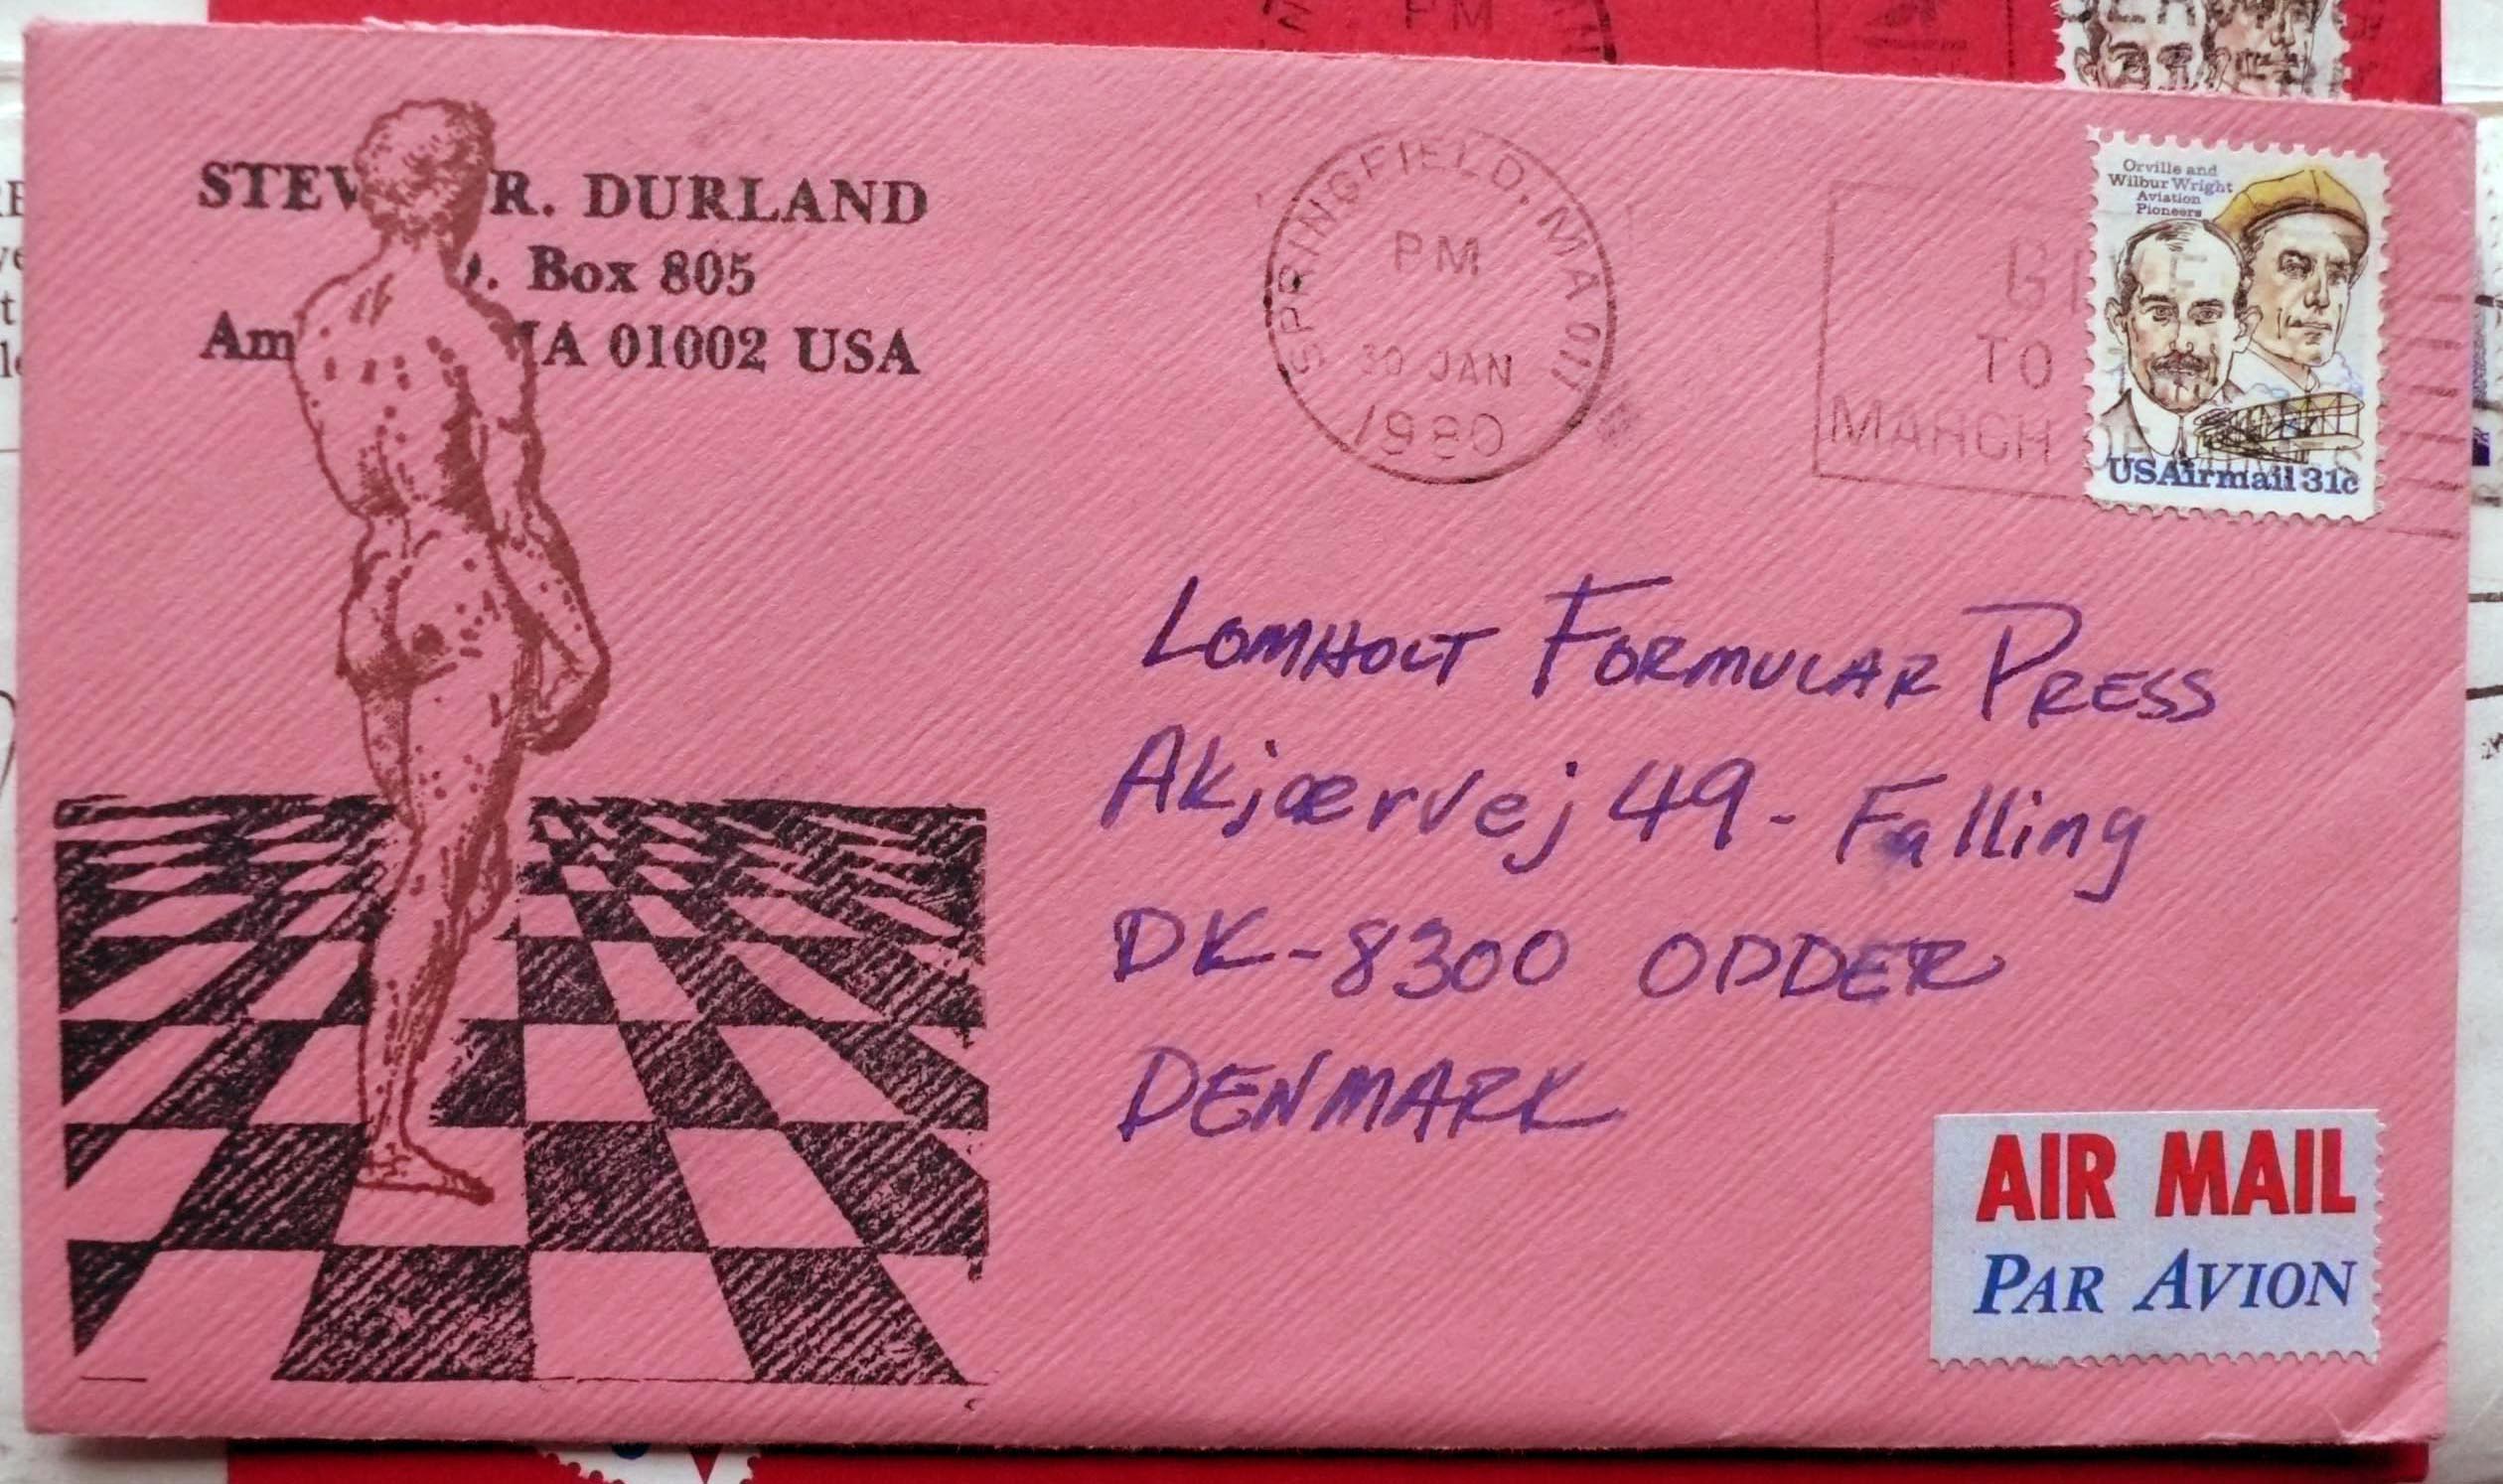 STEV R. DURLAND
. Box 805
Am IA 01002 USA
SPRINGFIELD, MA 011
PM
30 JAN
1980
GIVE
TO
MARCH OF
Orville and
Wilbur Wright
Aviation
Pioneers
USAirmail 31c
LOMHOLT FORMULAR PRESS
Akjærvej 49 - Falling
DK-8300 ODDER
DENMARK
AIR MAIL
PAR AVION
PM